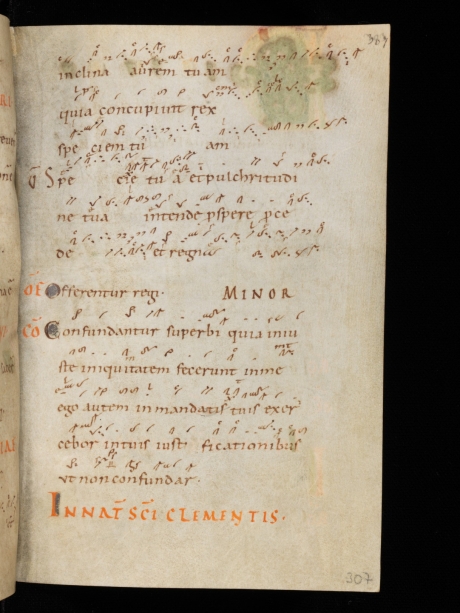 367
inclina aurem tuam
quia concupiuit rex
spe ciem tu am
V Spe cie tu a et pulchritudi
ne tua intende pspere pce
de et regna
OF Offerentur regi. MINOR
CO Confundantur superbi quia iniu
ste iniquitatem fecerunt in me
ego autem in mandatis tuis exer
cebor in tuis iusti ficationibus
ut non confundar.
IN NAT SCI CLEMENTIS.
307